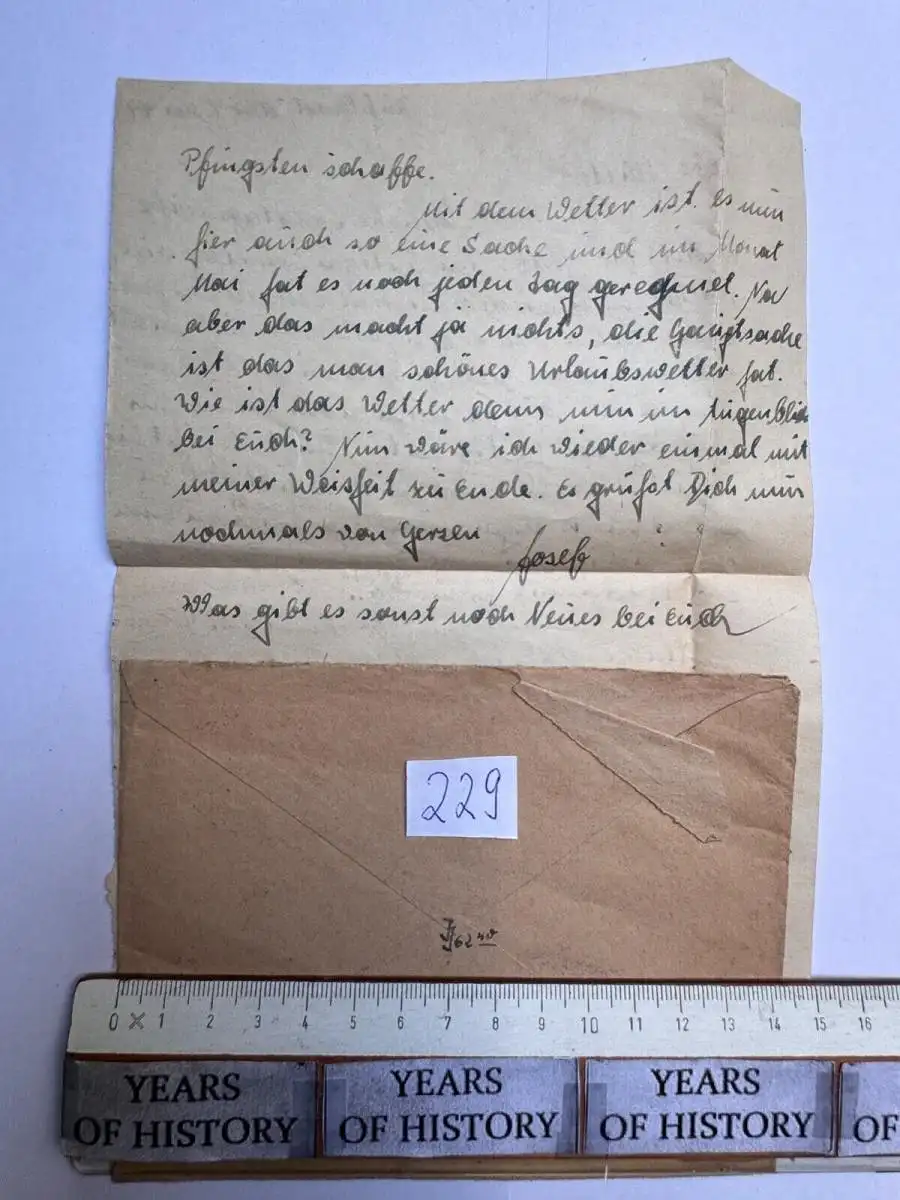 Pfingsten schaffe.
Mit dem Wetter ist es nun
hier auch so eine Sache und im Monat
Mai hat es noch jeden Tag geregnet. Na
aber das macht ja nichts, die Hauptsache
ist das man schönes Urlaubswetter hat.
Wie ist das Wetter denn nun im Augenblick
bei Euch? Nun wäre ich wieder einmal mit
meiner Weisheit zu Ende. Es grüßt Dich nun
nochmals von Herzen
Josef
Was gibt es sonst noch Neues bei Euch
229
0 1 2 3 4 5 6 7 8 9 10 11 12 13 14 15 16
YEARS YEARS YEARS
OF HISTORY OF HISTORY OF HISTORY OF